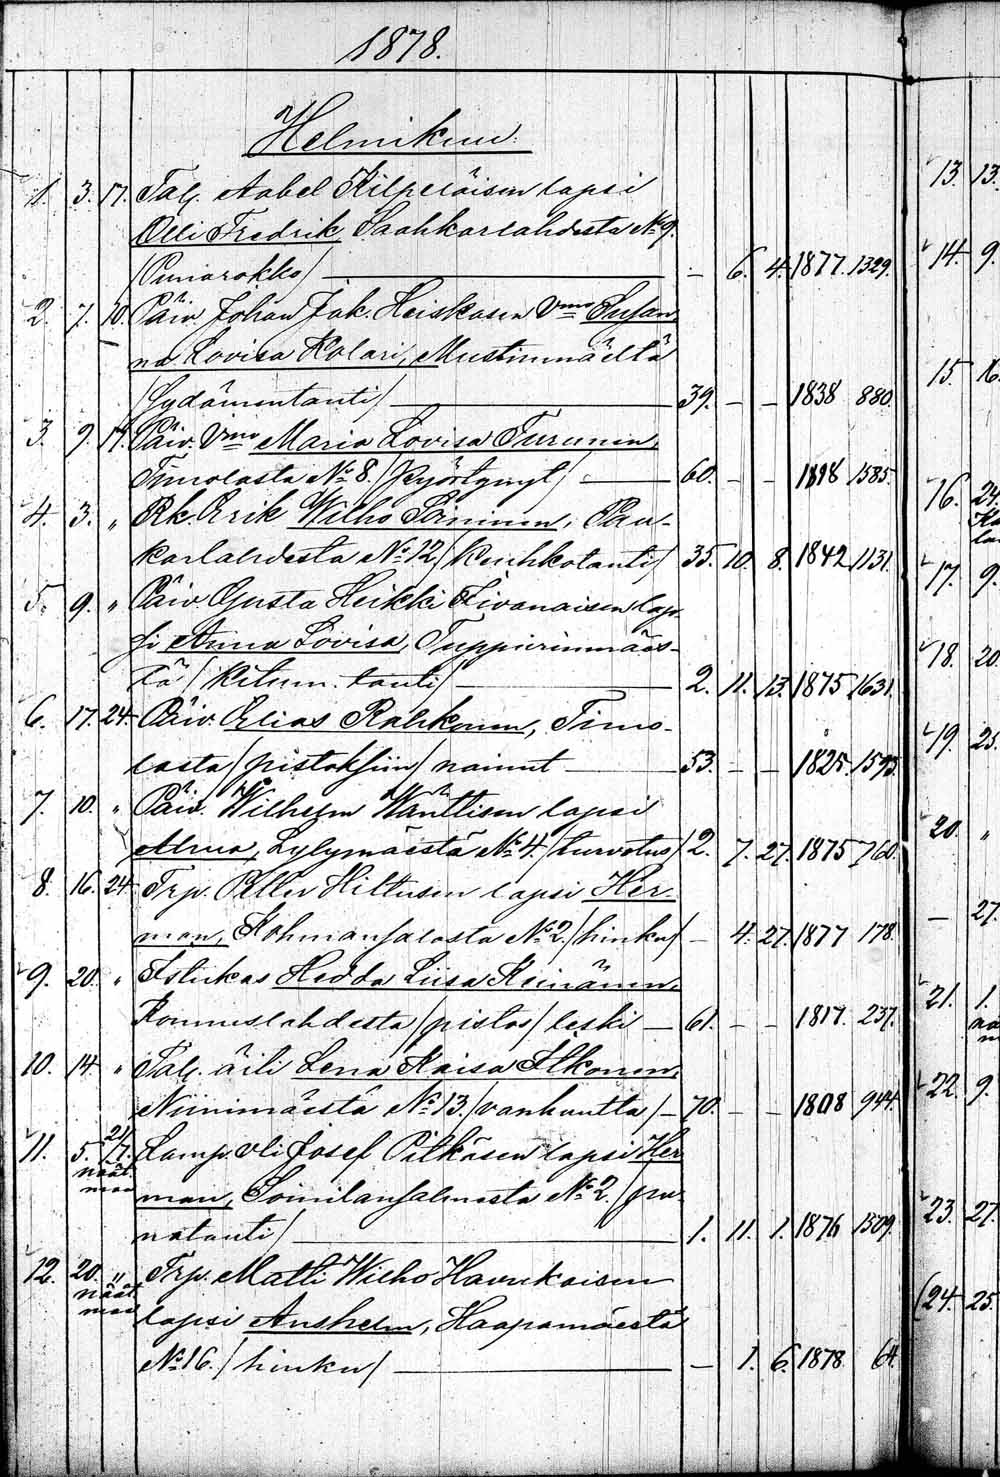 1878.
Helmikuu.
1. 3. 17. Talj. Aabel Kilpeläisen lapsi
Olli Fredrik, Saahkarlahdesta No 9.
/Punarokko/ — 6. 4. 1877. 1329.
2. 7. 10. Päiv. Johan Jak. Heiskasen Vmo Susan
na Lovisa Kolari, Mustinmäeltä
/Sydämentauti/ 39. — — 1838 880.
3. 9. 17. Päiv. Vmo Maria Lovisa Turunen,
Timolasta No 8. 60. — — 1818 1585.
4. 3. " Rk. Erik Wilho Soininen, Pau-
karlahdesta No 12, /Keuhkotauti/ 35. 10. 8. 1842 1131.
5. 9. " Päiv Gusta Heikki Tivanaisen lap-
si Anna Lovisa, Tuppurinmäes-
tä /kitum. tauti/ 2. 11. 13. 1875 1631.
6. 17. 24. Päiv. Elias Rahkonen, Timo-
lasta /pistoksiin/ nainut 53. — — 1825. 1595.
7. 10. " Päiv. Wilhelm Wänttisen lapsi
Alma, Lylymäestä No 4. /turvotus/ 2. 7. 27. 1875 760.
8. 16. 24 Trp. Peller Hiltusen lapsi Her-
man, Kohmansalosta No 2. /hinku/ — 4. 27. 1877 178.
9. 20. " Itslukas Hedda Liisa Keinänen,
Konnuslahdesta /pistos/ leski — 61. — — 1817. 237.
10. 14. " Talj. äiti Lena Kaisa Ikonen,
Niinimäestä No 13. /vanhuutta/ — 70. — — 1808 944.
11. 5. 21/7. Lamp. vli Josef Pitkäsen lapsi Her
näät
man, Soinilansalmesta No 2. /pu-
natauti/ 1. 11. 1. 1876 1509.
12. 20. " Trp. Matti Wilho Haukaisen
näät
lapsi Anshelm, Haapamäestä
No 16. /hinku/ — 1. 6. 1878 64.
13. 13.
14. 9.
15. 16.
16. 24.
17. 9.
18. 20.
19. 25.
20. "
— 27.
21. 1.
22. 9.
23. 27.
(24. 25.